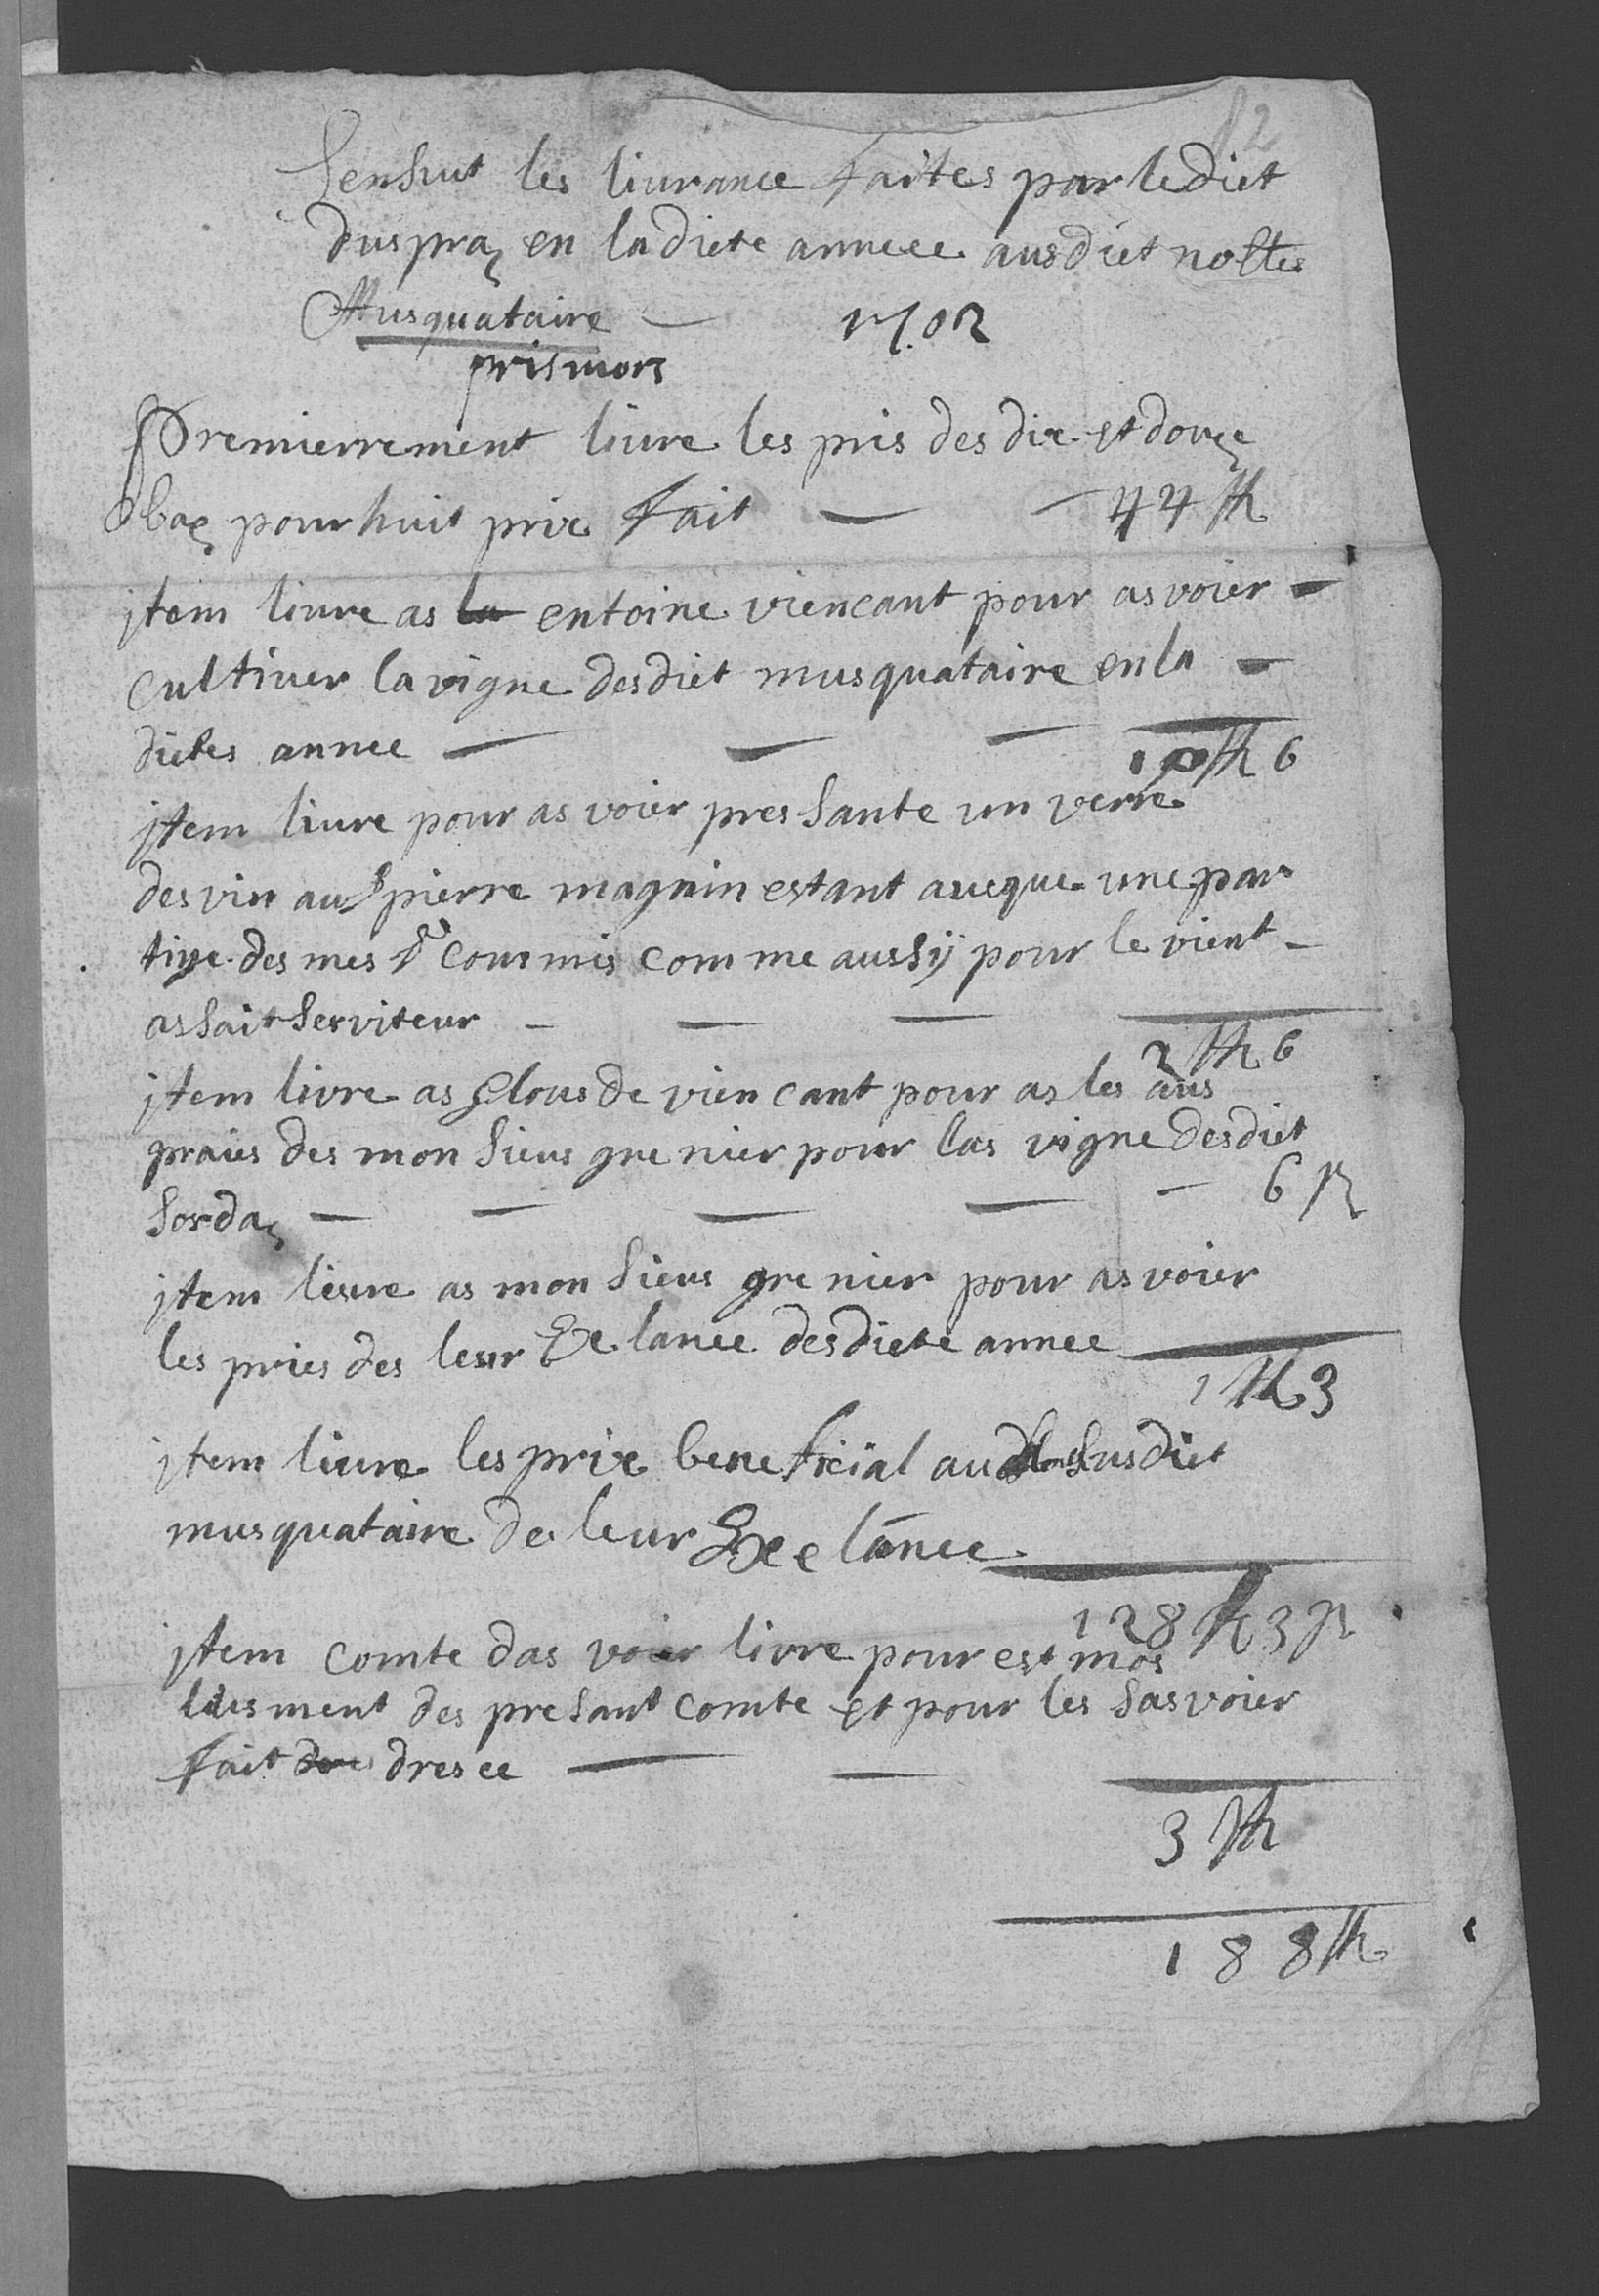 82
Sensuit les liurance faites par le dict
duspraz en la diete anneee ausdiet nostre
Musquataire 1702
prismors
Premierrement liure les pris des dix et douze
baz pour huit prix fait 44 ff
jtem liure as la entoine viencant pour as voier
cultiuer la vigne desdiet musquataire en la
dietes annee 10 ff 6
jtem liure pour as voier pres sante un verre
des vin au Sr pierre magnin estant aueque une par
tiye des mes Sr commis com me aussÿ pour le vient
as sait serviteur 2 ff 6
jtem livre as Glous de vien cant pour as les aus
praies des mon sieus gre nier pour las vigne desdiet
sordaz 6 ß
jtem leure as mon sieus gre nier pour as voier
les pries des leur Exe lance desdiete annee
1 ff 3
jtem liure les prix benefieial au susdiet
musquataire de leur Exe lance
128 ff 3 ß
jtem comte das voier livre pour est mos
luis ment des presant comte et pour les sasvoier
fait dresee
3 ff
188 ff